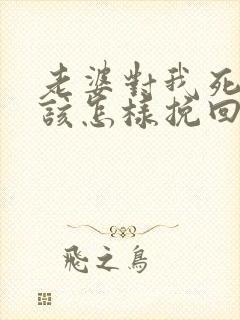 老婆對我死
該怎樣挽回
飛之鳥